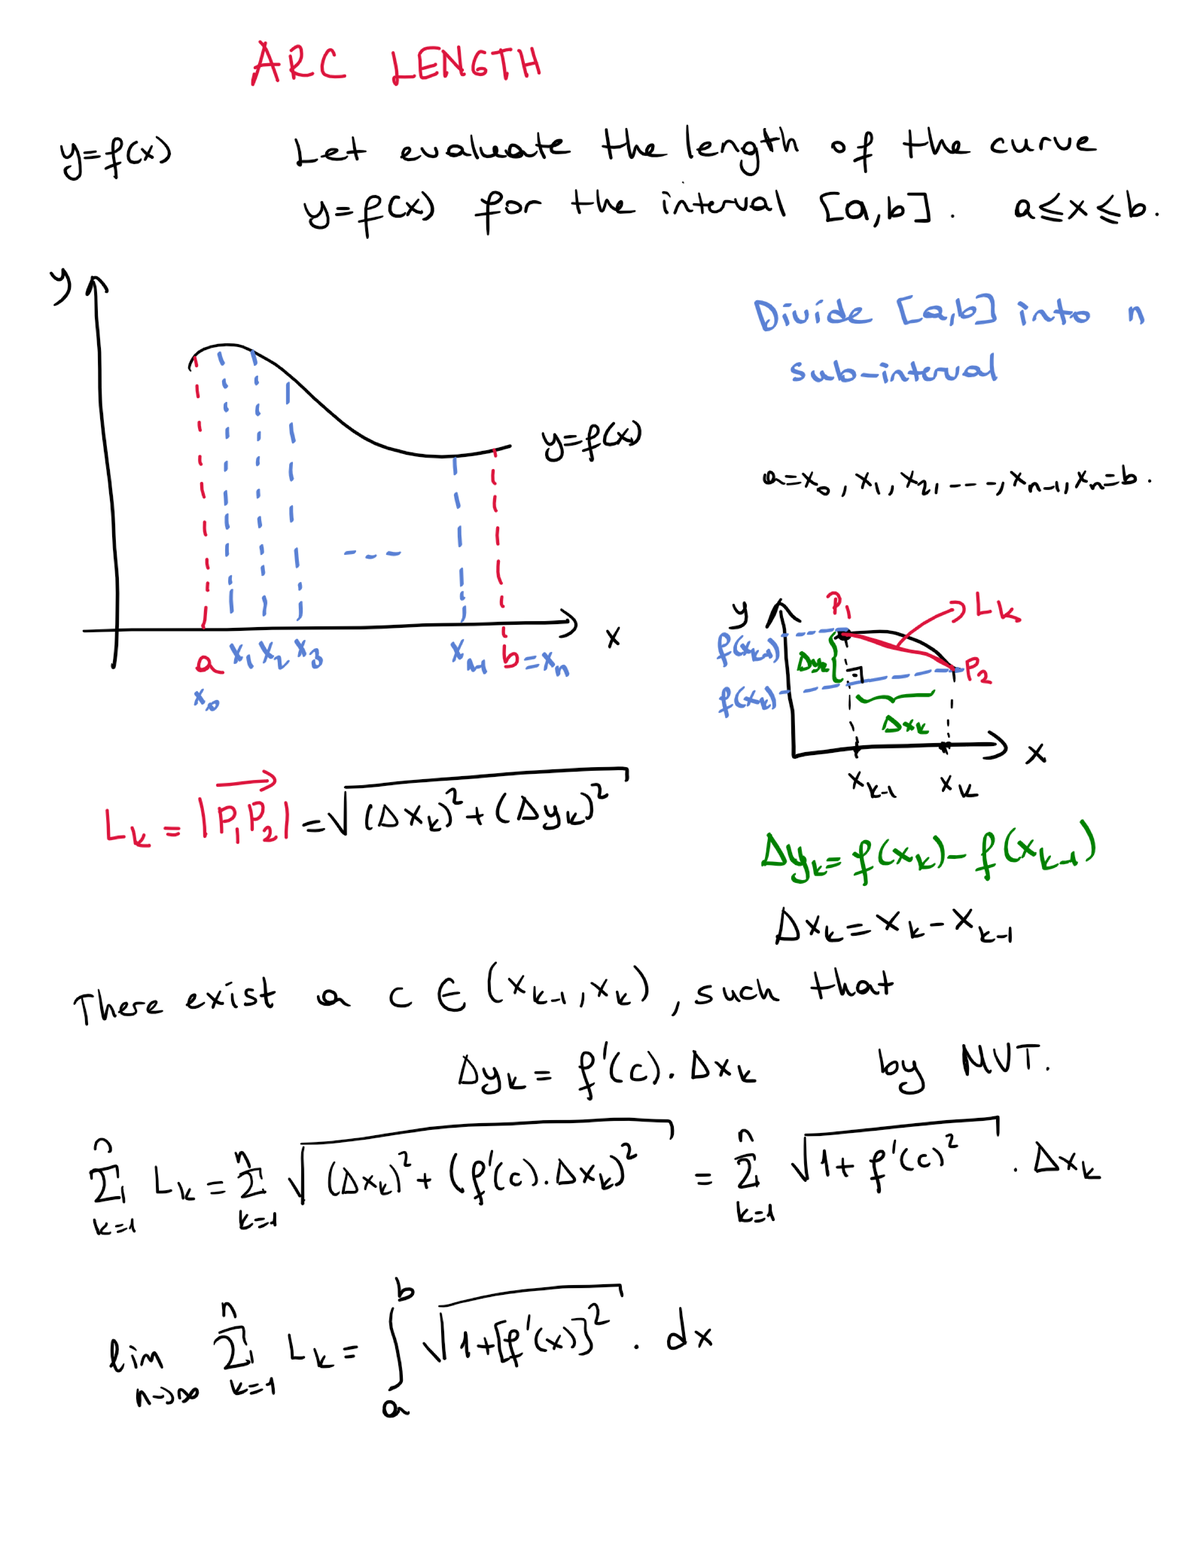 ARC LENGTH
y=f(x) Let evaluate the length of the curve
y=f(x) for the interval [a,b]. a≤x≤b.
y
Divide [a,b] into n
sub-interval
y=f(x)
a=x₀, x₁, x₂, ---, xₙ₋₁, xₙ=b.
x
a x₁ x₂ x₃ --- xₙ₋₁ b=xₙ
x₀
y P₁ Lₖ
f(xₖ₋₁) Δyₖ
P₂
f(xₖ) Δxₖ
x
xₖ₋₁ xₖ
Lₖ = |P₁P₂| = √((Δxₖ)² + (Δyₖ)²)
Δyₖ = f(xₖ) - f(xₖ₋₁)
Δxₖ = xₖ - xₖ₋₁
There exist a c ∈ (xₖ₋₁, xₖ), such that
Δyₖ = f'(c). Δxₖ by MVT.
n Σ k=1 Lₖ = n Σ k=1 √((Δxₖ)² + (f'(c).Δxₖ)²) = n Σ k=1 √(1+f'(c)²) . Δxₖ
lim n→∞ n Σ k=1 Lₖ = b ∫ a √(1+[f'(x)]²) . dx